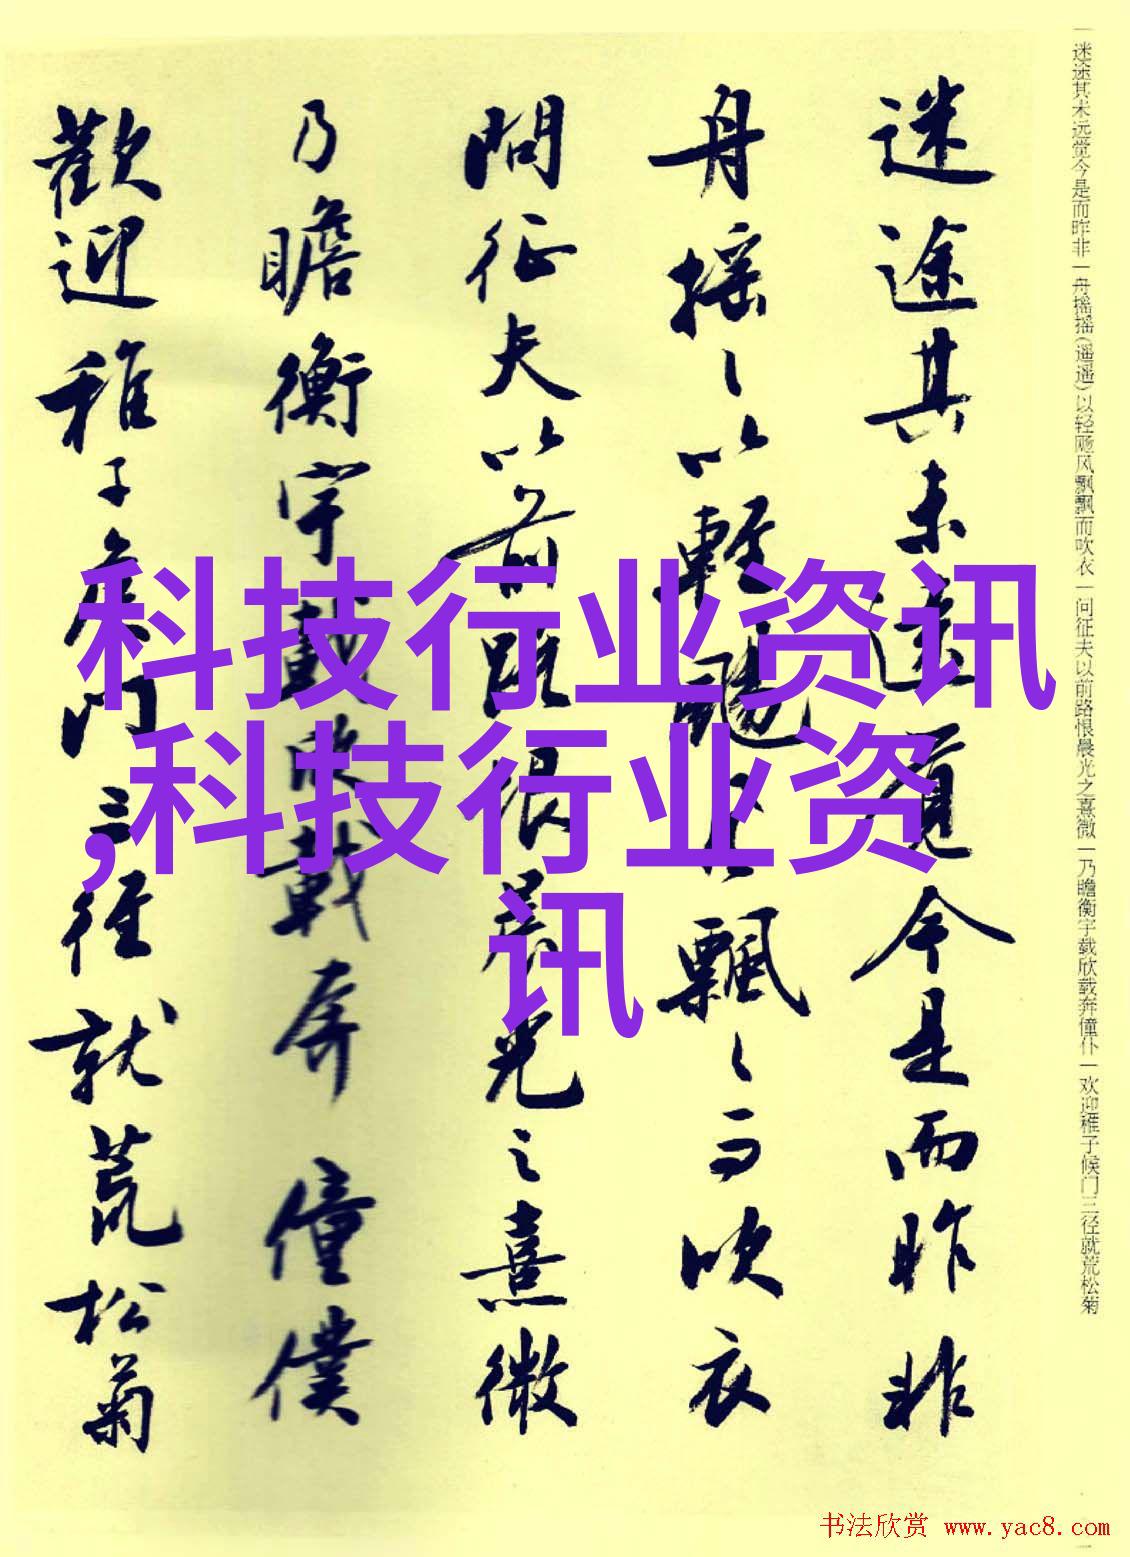 迷途其未远觉今是而昨非
舟摇〻以輕颺風飄〻而吹衣
問征夫以前路恨晨光之熹微
乃瞻衡宇載欣載奔僮僕
歡迎稚子候門三徑就荒松菊
一迷途其未远觉今是而昨非一舟摇摇(遥遥)以轻飏风飘飘而吹衣一问征夫以前路恨晨光之熹微一乃瞻衡宇载欣载奔僮仆一欢迎稚子候门三径就荒松菊
科技行业资讯
,科技行业资
讯
书法欣赏 www.yac8.com